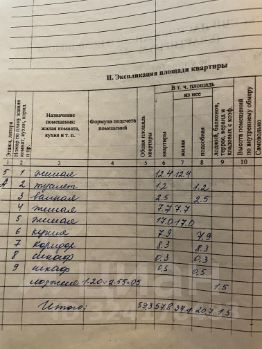 II. Экспликация площади квартиры
Этажи, литера
Назначение помещения: жилая комната, кухня и т. п.
Формула подсчета помещений
Общая площадь квартиры
В т. ч. площадь
из нее
квартиры
жилая
подсобная
Высота помещений по внутреннему обмеру
Самовольно
1 2 3 4 5 6 7 8 9 10
5 1 жилая 12.4 12.4
А 2 туалет 1.2 1.2
3 ванная 2.5 2.5
4 жилая 7.7 7.7
5 жилая 17.0 17.0
6 кухня 7.9 7.9
7 коридор 8.3 8.3
8 шкаф 0.3 0.3
9 шкаф 0.5 0.5
лоджия 1.20×2.55×0.5 1.5
Итого: 59.3 57.8 37.1 20.7 1.5